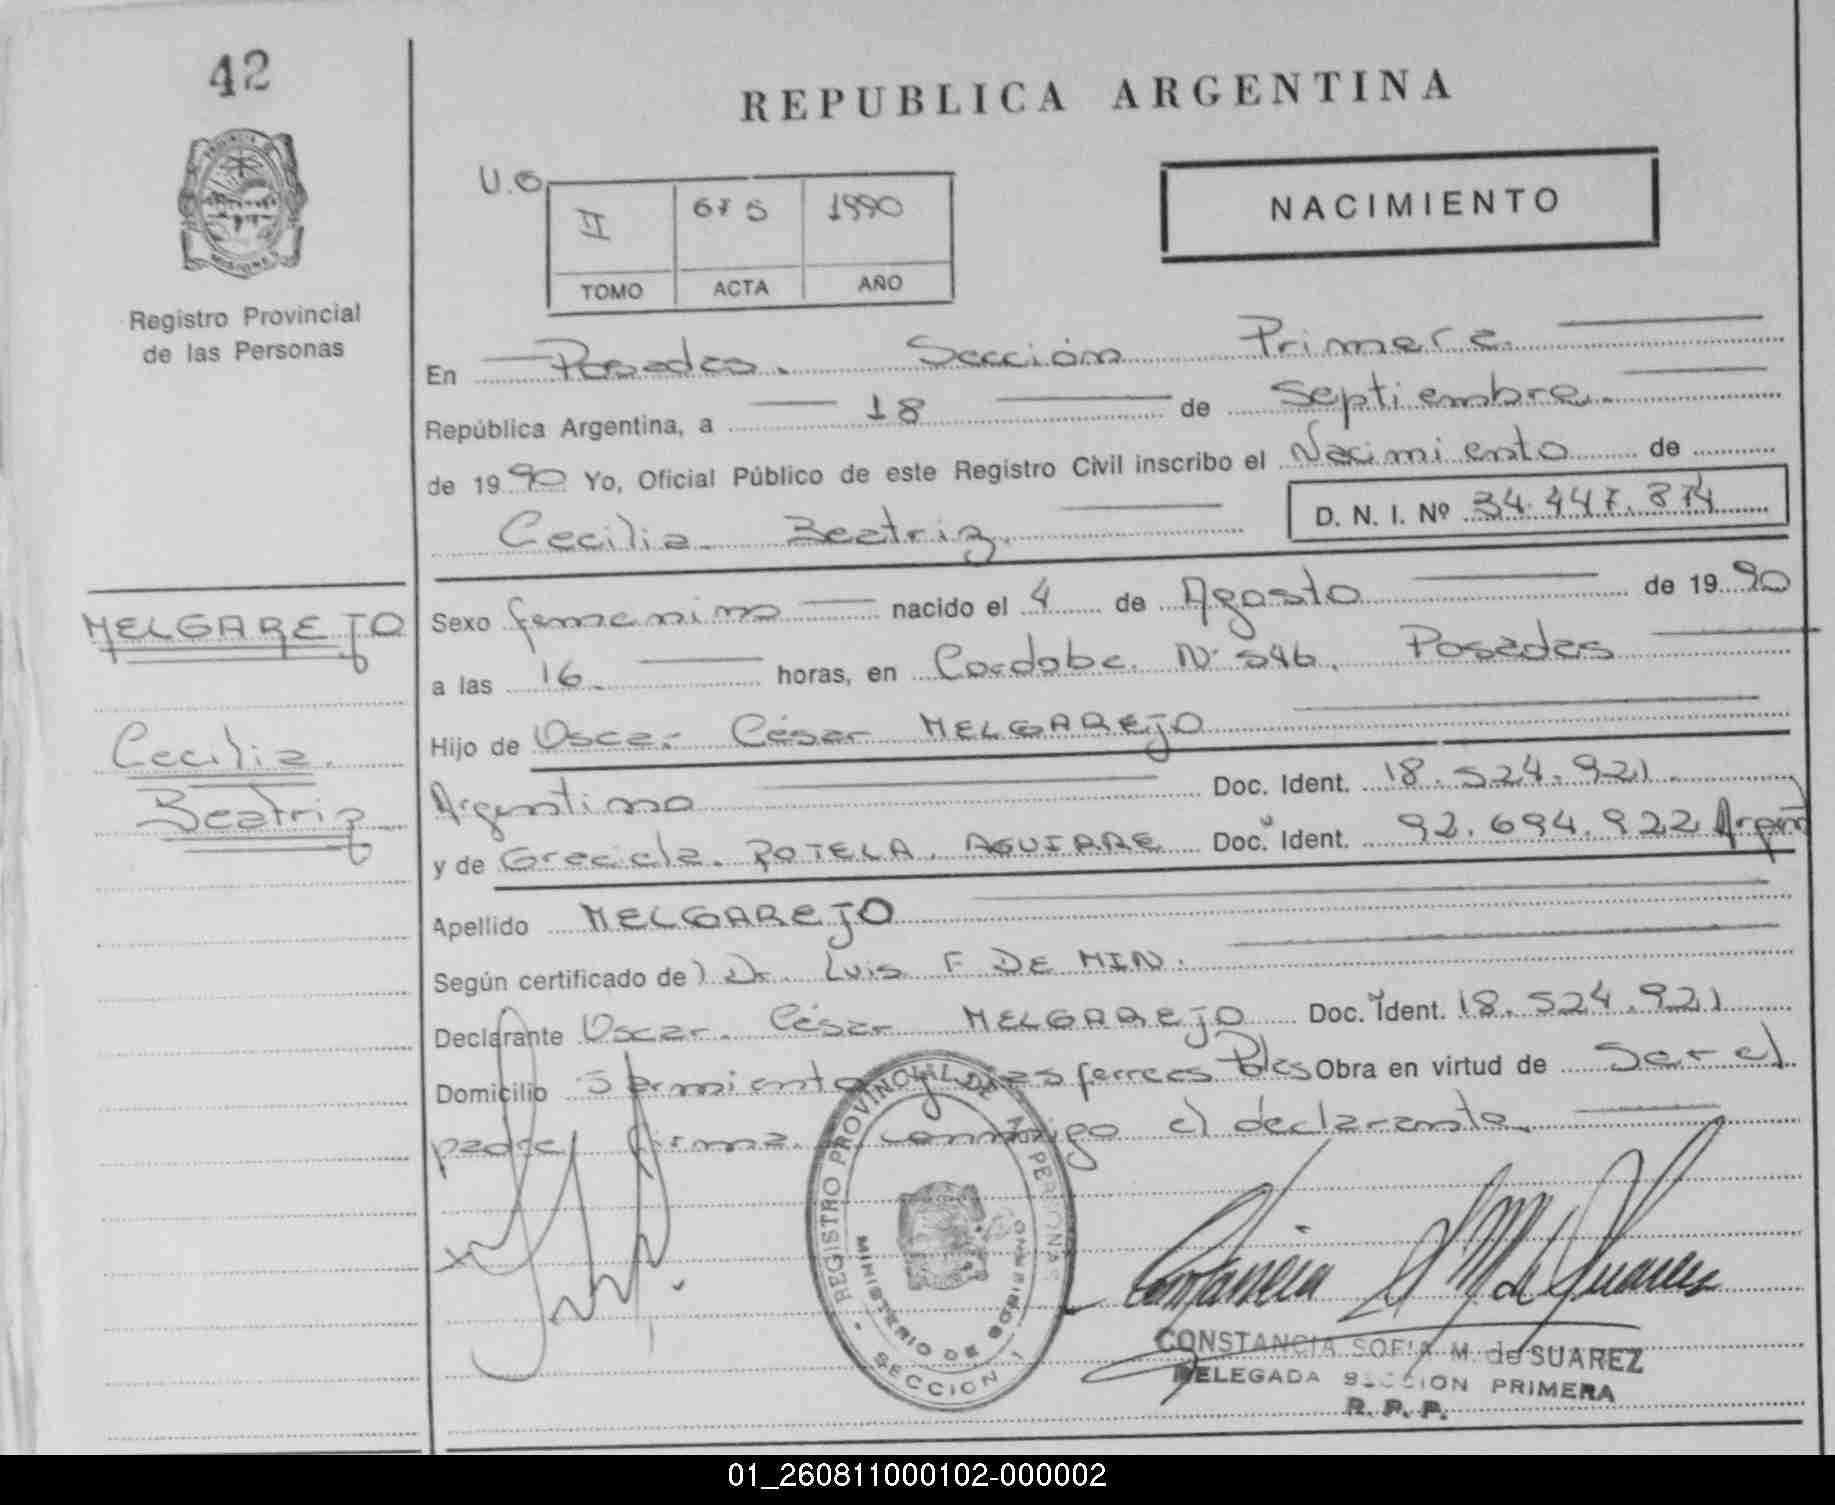 42
REPUBLICA ARGENTINA
U.G
II 675 1990
TOMO ACTA AÑO
NACIMIENTO
Registro Provincial
de las Personas
En Posadas. Sección Primera
República Argentina, a 18 de Septiembre.
de 1990 Yo, Oficial Público de este Registro Civil inscribo el Nacimiento de
Cecilia Beatriz. D. N. I. Nº 34.447.874
MELGAREJO
Cecilia
Beatriz
Sexo femenino nacido el 4 de Agosto de 1990
a las 16 horas, en Cordoba. Nº 546. Posadas
Hijo de Oscar César MELGAREJO
Argentino Doc. Ident. 18.524.921
y de Graciela. POTELA. AGUIRRE Doc. Ident. 92.694.922
Apellido MELGAREJO
Según certificado de) Dr. Luis F DE MIN.
Declarante Oscar César MELGAREJO Doc. Ident. 18.524.921
Domicilio Sarmiento y Vías ferreas Pdas Obra en virtud de Ser el
padre, firma conmigo el declarante.
REGISTRO PROVINCIAL DE PERSONAS
MINISTERIO DE GOBIERNO
SECCION 1
Constancia S M de Suarez
CONSTANCIA SOFIA M. de SUAREZ
DELEGADA SECCION PRIMERA
R. P. P.
01_260811000102-000002